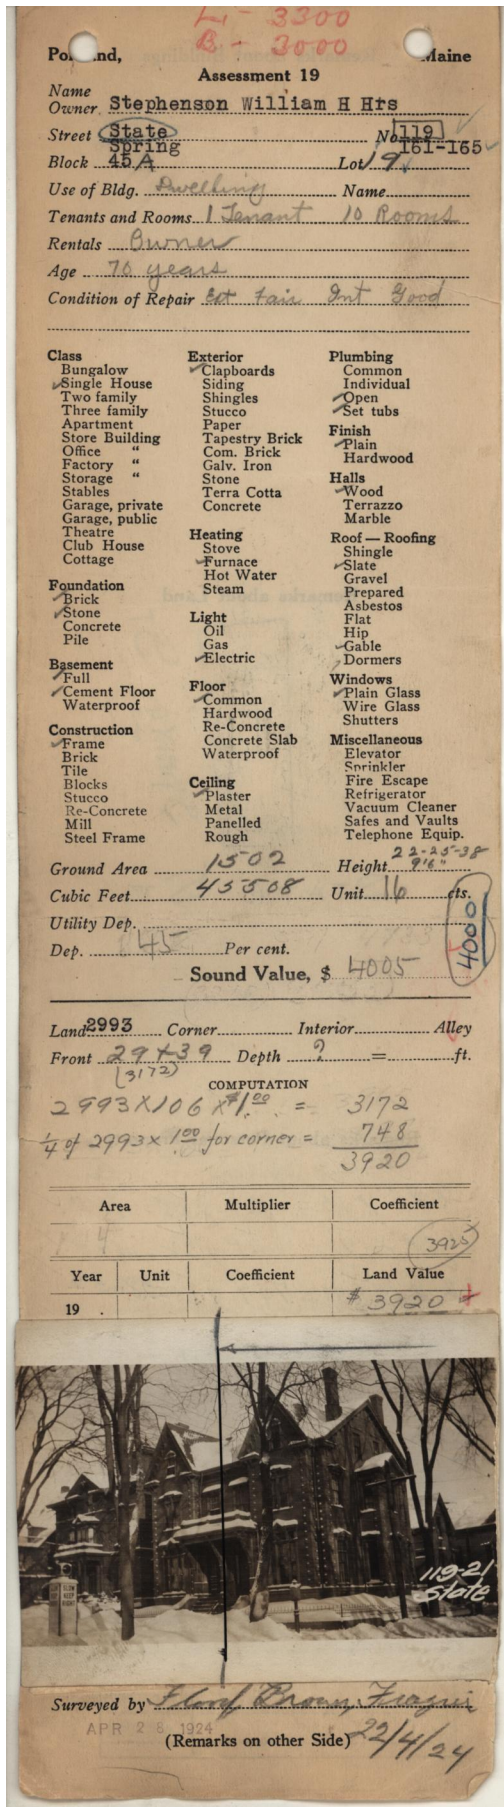 L - 3300
B - 3000
Portland, Maine
Assessment 19
Name
Owner Stephenson William H Hrs
Street State No 119
Spring 161-165
Block 45 A Lot 9
Use of Bldg. Dwelling Name
Tenants and Rooms 1 Tenant 10 Rooms
Rentals Owner
Age 70 years
Condition of Repair Ext Fair Int Good
Class
Bungalow
Single House
Two family
Three family
Apartment
Store Building
Office "
Factory "
Storage "
Stables
Garage, private
Garage, public
Theatre
Club House
Cottage
Foundation
Brick
Stone
Concrete
Pile
Basement
Full
Cement Floor
Waterproof
Construction
Frame
Brick
Tile
Blocks
Stucco
Re-Concrete
Mill
Steel Frame
Exterior
Clapboards
Siding
Shingles
Stucco
Paper
Tapestry Brick
Com. Brick
Galv. Iron
Stone
Terra Cotta
Concrete
Heating
Stove
Furnace
Hot Water
Steam
Light
Oil
Gas
Electric
Floor
Common
Hardwood
Re-Concrete
Concrete Slab
Waterproof
Ceiling
Plaster
Metal
Panelled
Rough
Plumbing
Common
Individual
Open
Set tubs
Finish
Plain
Hardwood
Halls
Wood
Terrazzo
Marble
Roof — Roofing
Shingle
Slate
Gravel
Prepared
Asbestos
Flat
Hip
Gable
Dormers
Windows
Plain Glass
Wire Glass
Shutters
Miscellaneous
Elevator
Sprinkler
Fire Escape
Refrigerator
Vacuum Cleaner
Safes and Vaults
Telephone Equip.
Ground Area 1502 Height 22-25-38
9'6"
Cubic Feet 45508 Unit 16 cts.
Utility Dep.
Dep. 45 Per cent.
4000
Sound Value, $ 4005
Land 2993 Corner Interior Alley
Front 29+39 Depth ? = ft.
(3172)
COMPUTATION
2993 X 106 X $1.00 = 3172
1/4 of 2993 x 1.00 for corner = 748
3920
Area Multiplier Coefficient
4 3925
Year Unit Coefficient Land Value
19 . $ 3920
SLOW
KEEP
RIGHT
119-21
State
Surveyed by Flood Brown, Frazier
APR 28 1924
(Remarks on other Side) 22/4/24